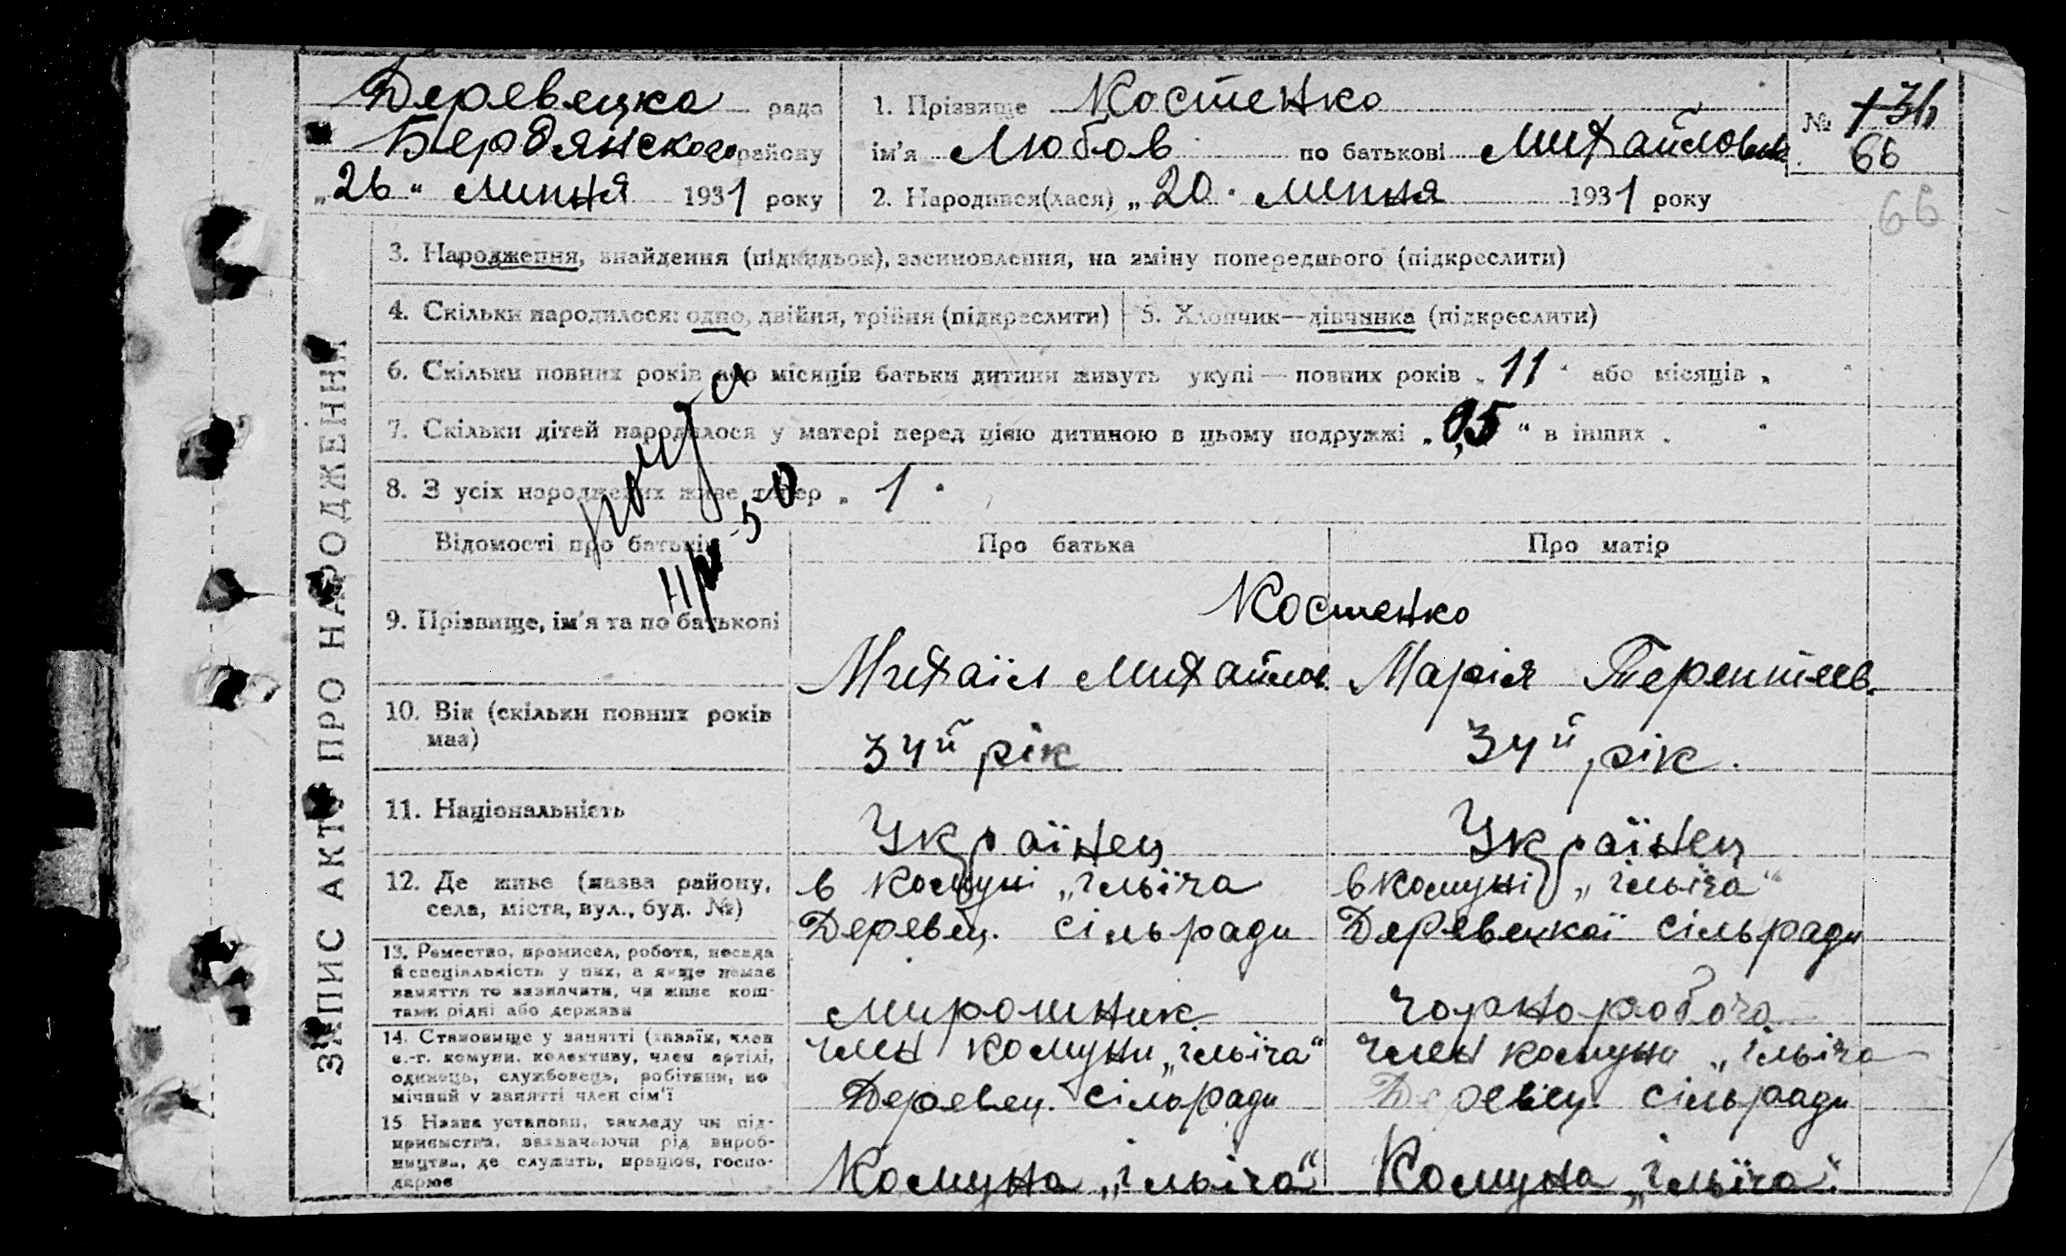 Деревецка рада
Бердянского району
„26“ липня 1931 року
1. Прізвище Костенко
ім'я Любов по батькові Михайловна
2. Народився(лася) „20“ липня 1931 року
№ 136
66
66
ЗАПИС АКТУ ПРО НАРОДЖЕННЯ
3. Народження, знайдення (підкидьок), засиновлення, на зміну попереднього (підкреслити)
4. Скільки народилося: одно, двійня, трійня (підкреслити)
5. Хлопчик—дівчинка (підкреслити)
6. Скільки повних років або місяців батьки дитини живуть укупі — повних років „11“ або місяців „
7. Скільки дітей народилося у матері перед цією дитиною в цьому подружжі „ 5 “ в інших „
8. З усіх народжених живе тепер „1“
Відомості про батьків
Про батька
Про матір
9. Прізвище, ім'я та по батькові
Костенко
Михаїл Михайлов.
Марія Терентьев.
10. Вік (скільки повних років має)
34й рік
34й рік.
11. Національність
Українец
Українец
12. Де живе (назва району, села, міста, вул., буд. №)
в комуні „ільїча
Деревец. сільради
в комуні „ільїча“
Деревецкої сільради
13. Ремество, промисел, робота, посада й спеціальність у них, а якще немає заняття то зазначити, чи живе коштами рідні або держави
мирошник
чорноробоча
14. Становище у занятті (хазяїн, член с.-г. комуни, колективу, член артілі, одинець, службовець, робітник, помічний у занятті член сім'ї
член комуни „ільїча“
Деревец. сільради
член комуни „ільїча
Деревец. сільради
15 Назва установи, закладу чи підприємства, зазначаючи рід виробництва, де служить, працює, господарює
Комуна „ільіча“
Комуна „ільїча“.